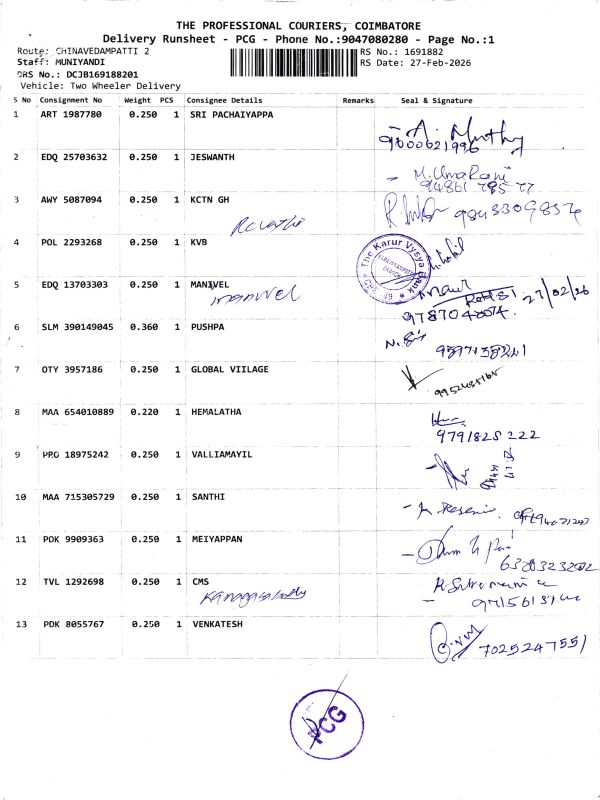 THE PROFESSIONAL COURIERS, COIMBATORE
Delivery Runsheet - PCG - Phone No.:9047080280 - Page No.:1
Route: CHINAVEDAMPATTI 2
RS No.: 1691882
Staff: MUNIYANDI
RS Date: 27-Feb-2026
DRS No.: DCJB169188201
Vehicle: Two Wheeler Delivery
S No Consignment No Weight PCS Consignee Details Remarks Seal & Signature
1 ART 1987780 0.250 1 SRI PACHAIYAPPA
2 EDQ 25703632 0.250 1 JESWANTH
M.UmaRani
3 AWY 5087094 0.250 1 KCTN GH
9843309856
Revathi
4 POL 2293268 0.250 1 KVB
The Karur Vysya Bank
5 EDQ 13703303 0.250 1 MANIVEL
manivel
27/02/26
9787048004.
6 SLM 390149045 0.360 1 PUSHPA
7 OTY 3957186 0.250 1 GLOBAL VIILAGE
8 MAA 654010889 0.220 1 HEMALATHA
9791825222
9 PRG 18975242 0.250 1 VALLIAMAYIL
10 MAA 715305729 0.250 1 SANTHI
11 PDK 9909363 0.250 1 MEIYAPPAN
6380323202
12 TVL 1292698 0.250 1 CMS
13 PDK 8055767 0.250 1 VENKATESH
7025247551
PCG